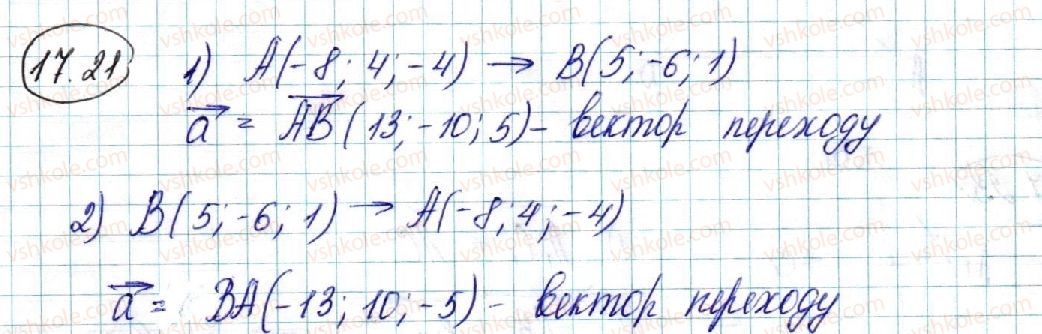 17.21
1) A(-8; 4; -4) → B(5; -6; 1)
a⃗ = AB⃗ (13; -10; 5) - вектор переходу
2) B(5; -6; 1) → A(-8; 4; -4)
a⃗ = BA(-13; 10; -5) - вектор переходу
vshkole.com